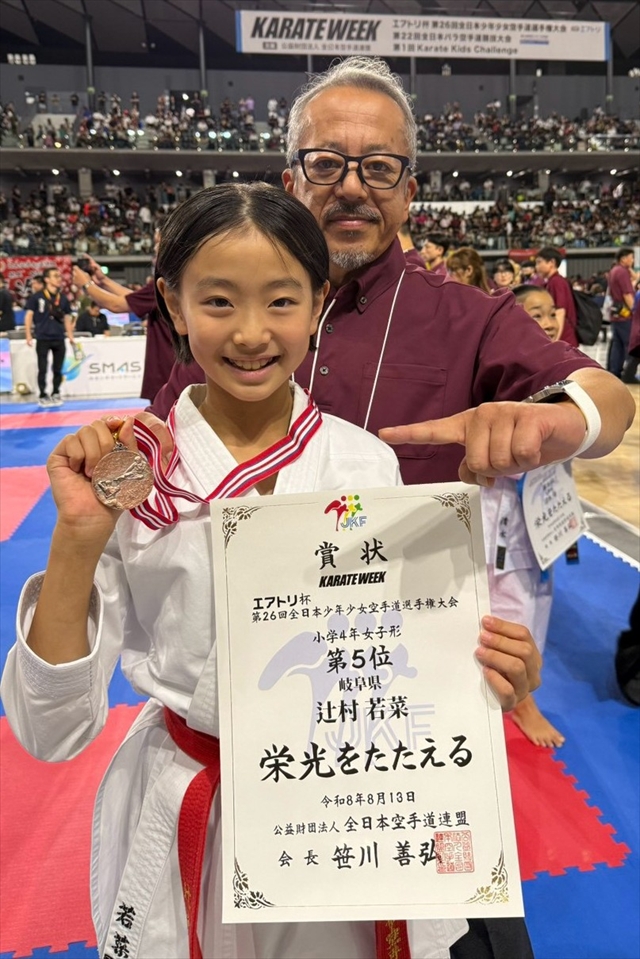 KARATE WEEK
主催 公益財団法人 全日本空手道連盟
エアトリ杯 第26回全日本少年少女空手道選手権大会
第22回全日本パラ空手道競技大会
第1回 Karate Kids Challenge
SMAS
JKF
賞状
KARATE WEEK
エアトリ杯
第26回全日本少年少女空手道選手権大会
小学4年女子形
第5位
岐阜県
辻村 若菜
栄光をたたえる
令和8年8月13日
公益財団法人 全日本空手道連盟
会長 笹川 善弘
JKF
若菜
栄光をたたえる